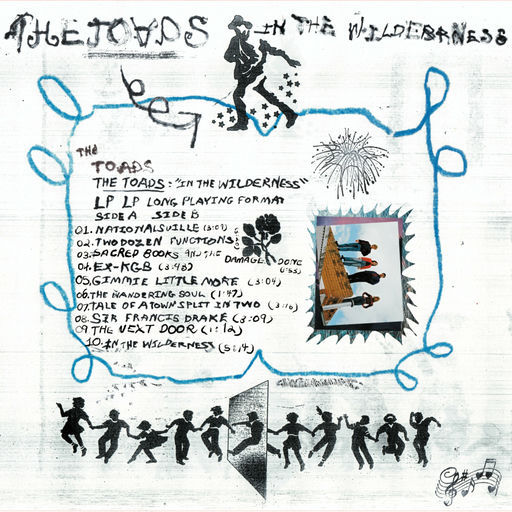 THE TOADS IN THE WILDERNESS
THE
TOADS
THE TOADS: "IN THE WILDERNESS"
LP LP LONG PLAYING FORMAT
SIDE A SIDE B
01. NATIONALSVILLE (3:07)
02. TWO DOZEN FUNCTIONS
03. SACRED BOOKS AND THE DAMAGE DONE
04. EX-KGB (3:48)
05. GIMMIE LITTLE MORE (3:04)
06. THE WANDERING SOUL (1:47)
07. TALE OF A TOWN SPLIT IN TWO (3:16)
08. SIR FRANCIS DRAKE (3:09)
09 THE NEXT DOOR (1:12)
10. IN THE WILDERNESS (5:14)